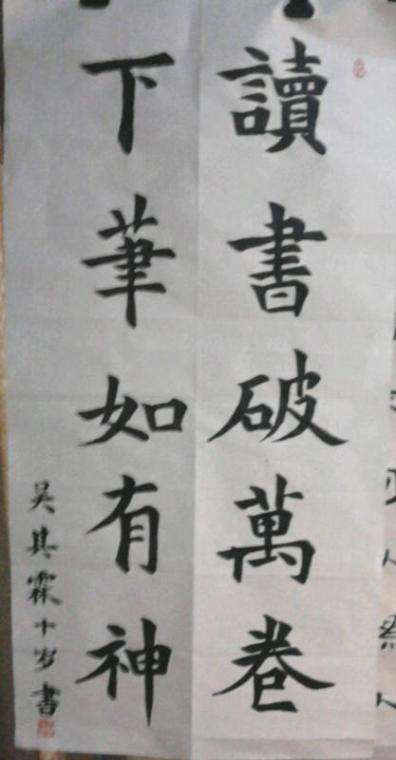 讀書破萬卷
下筆如有神
吴其霖十岁書